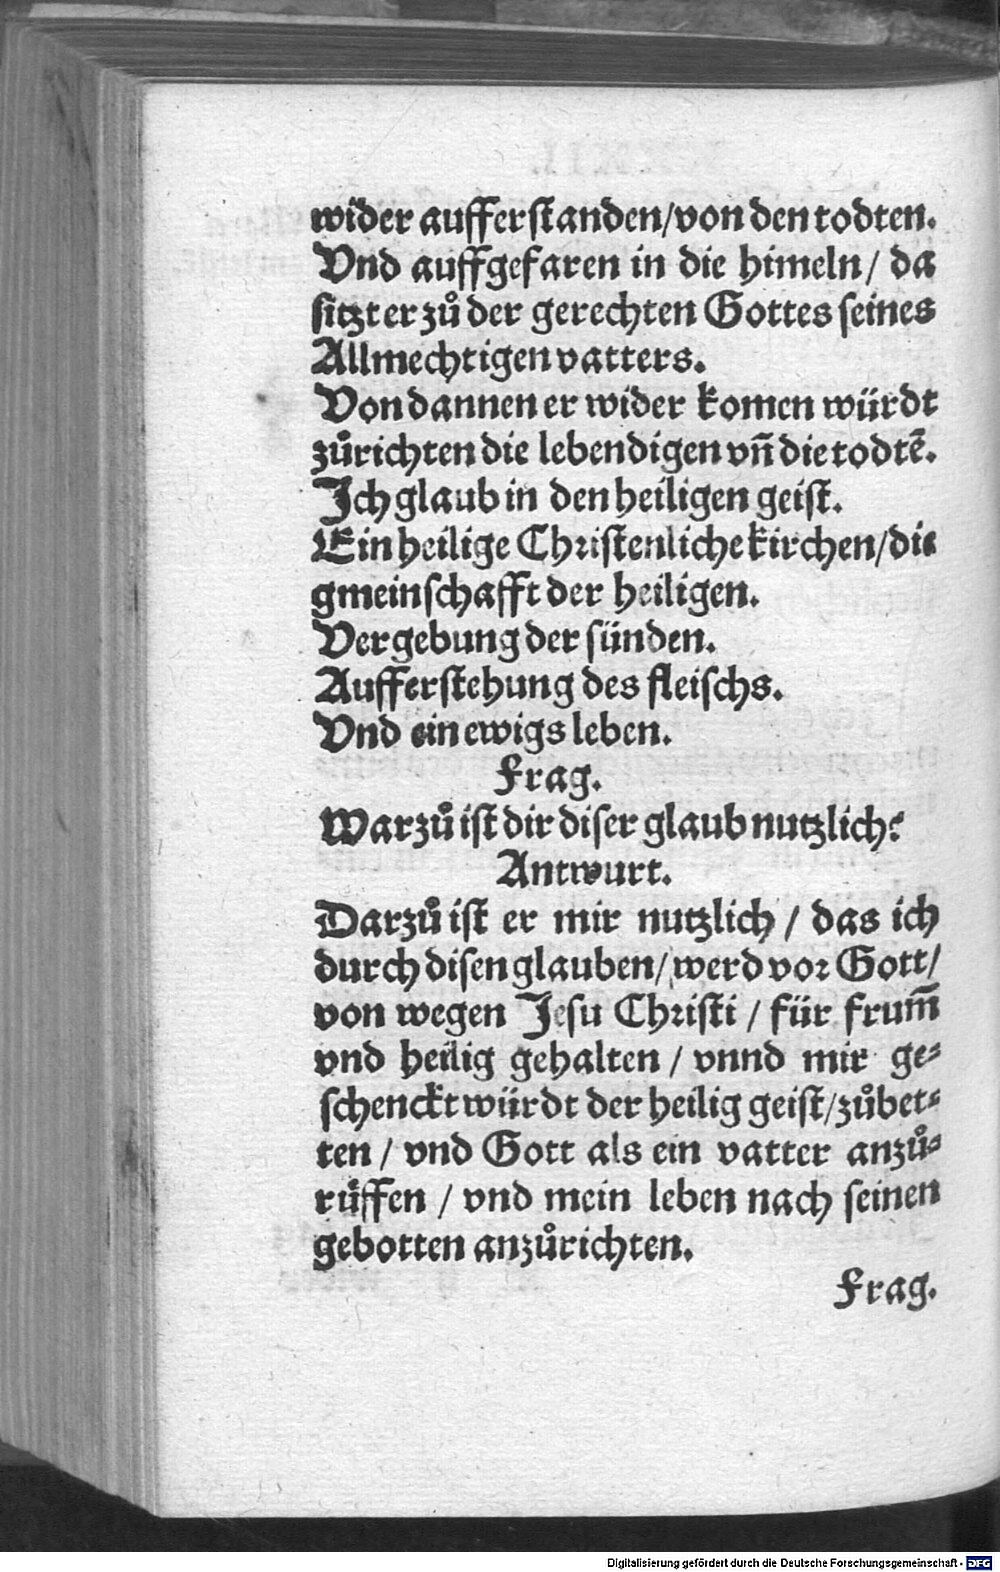 wider aufferstanden/von den todten.
Vnd auffgefaren in die himeln/ da
sitzt er zů der gerechten Gottes seines
Allmechtigen vatters.
Von dannen er wider komen würdt
zůrichten die lebendigen vn̄ die todtē.
Ich glaub in den heiligen geist.
Ein heilige Christenliche kirchen/die
gmeinschafft der heiligen.
Vergebung der sünden.
Aufferstehung des fleischs.
Vnd ein ewigs leben.
Frag.
Warzů ist dir diser glaub nutzlich?
Antwurt.
Darzů ist er mir nutzlich / das ich
durch disen glauben/ werd vor Gott/
von wegen Jesu Christi / für frum̄
vnd heilig gehalten / vnnd mir ge⸗
schenckt würdt der heilig geist/zůbet⸗
ten / vnd Gott als ein vatter anzů⸗
růffen / vnd mein leben nach seinen
gebotten anzůrichten.
Frag.
Digitalisierung gefördert durch die Deutsche Forschungsgemeinschaft - DFG